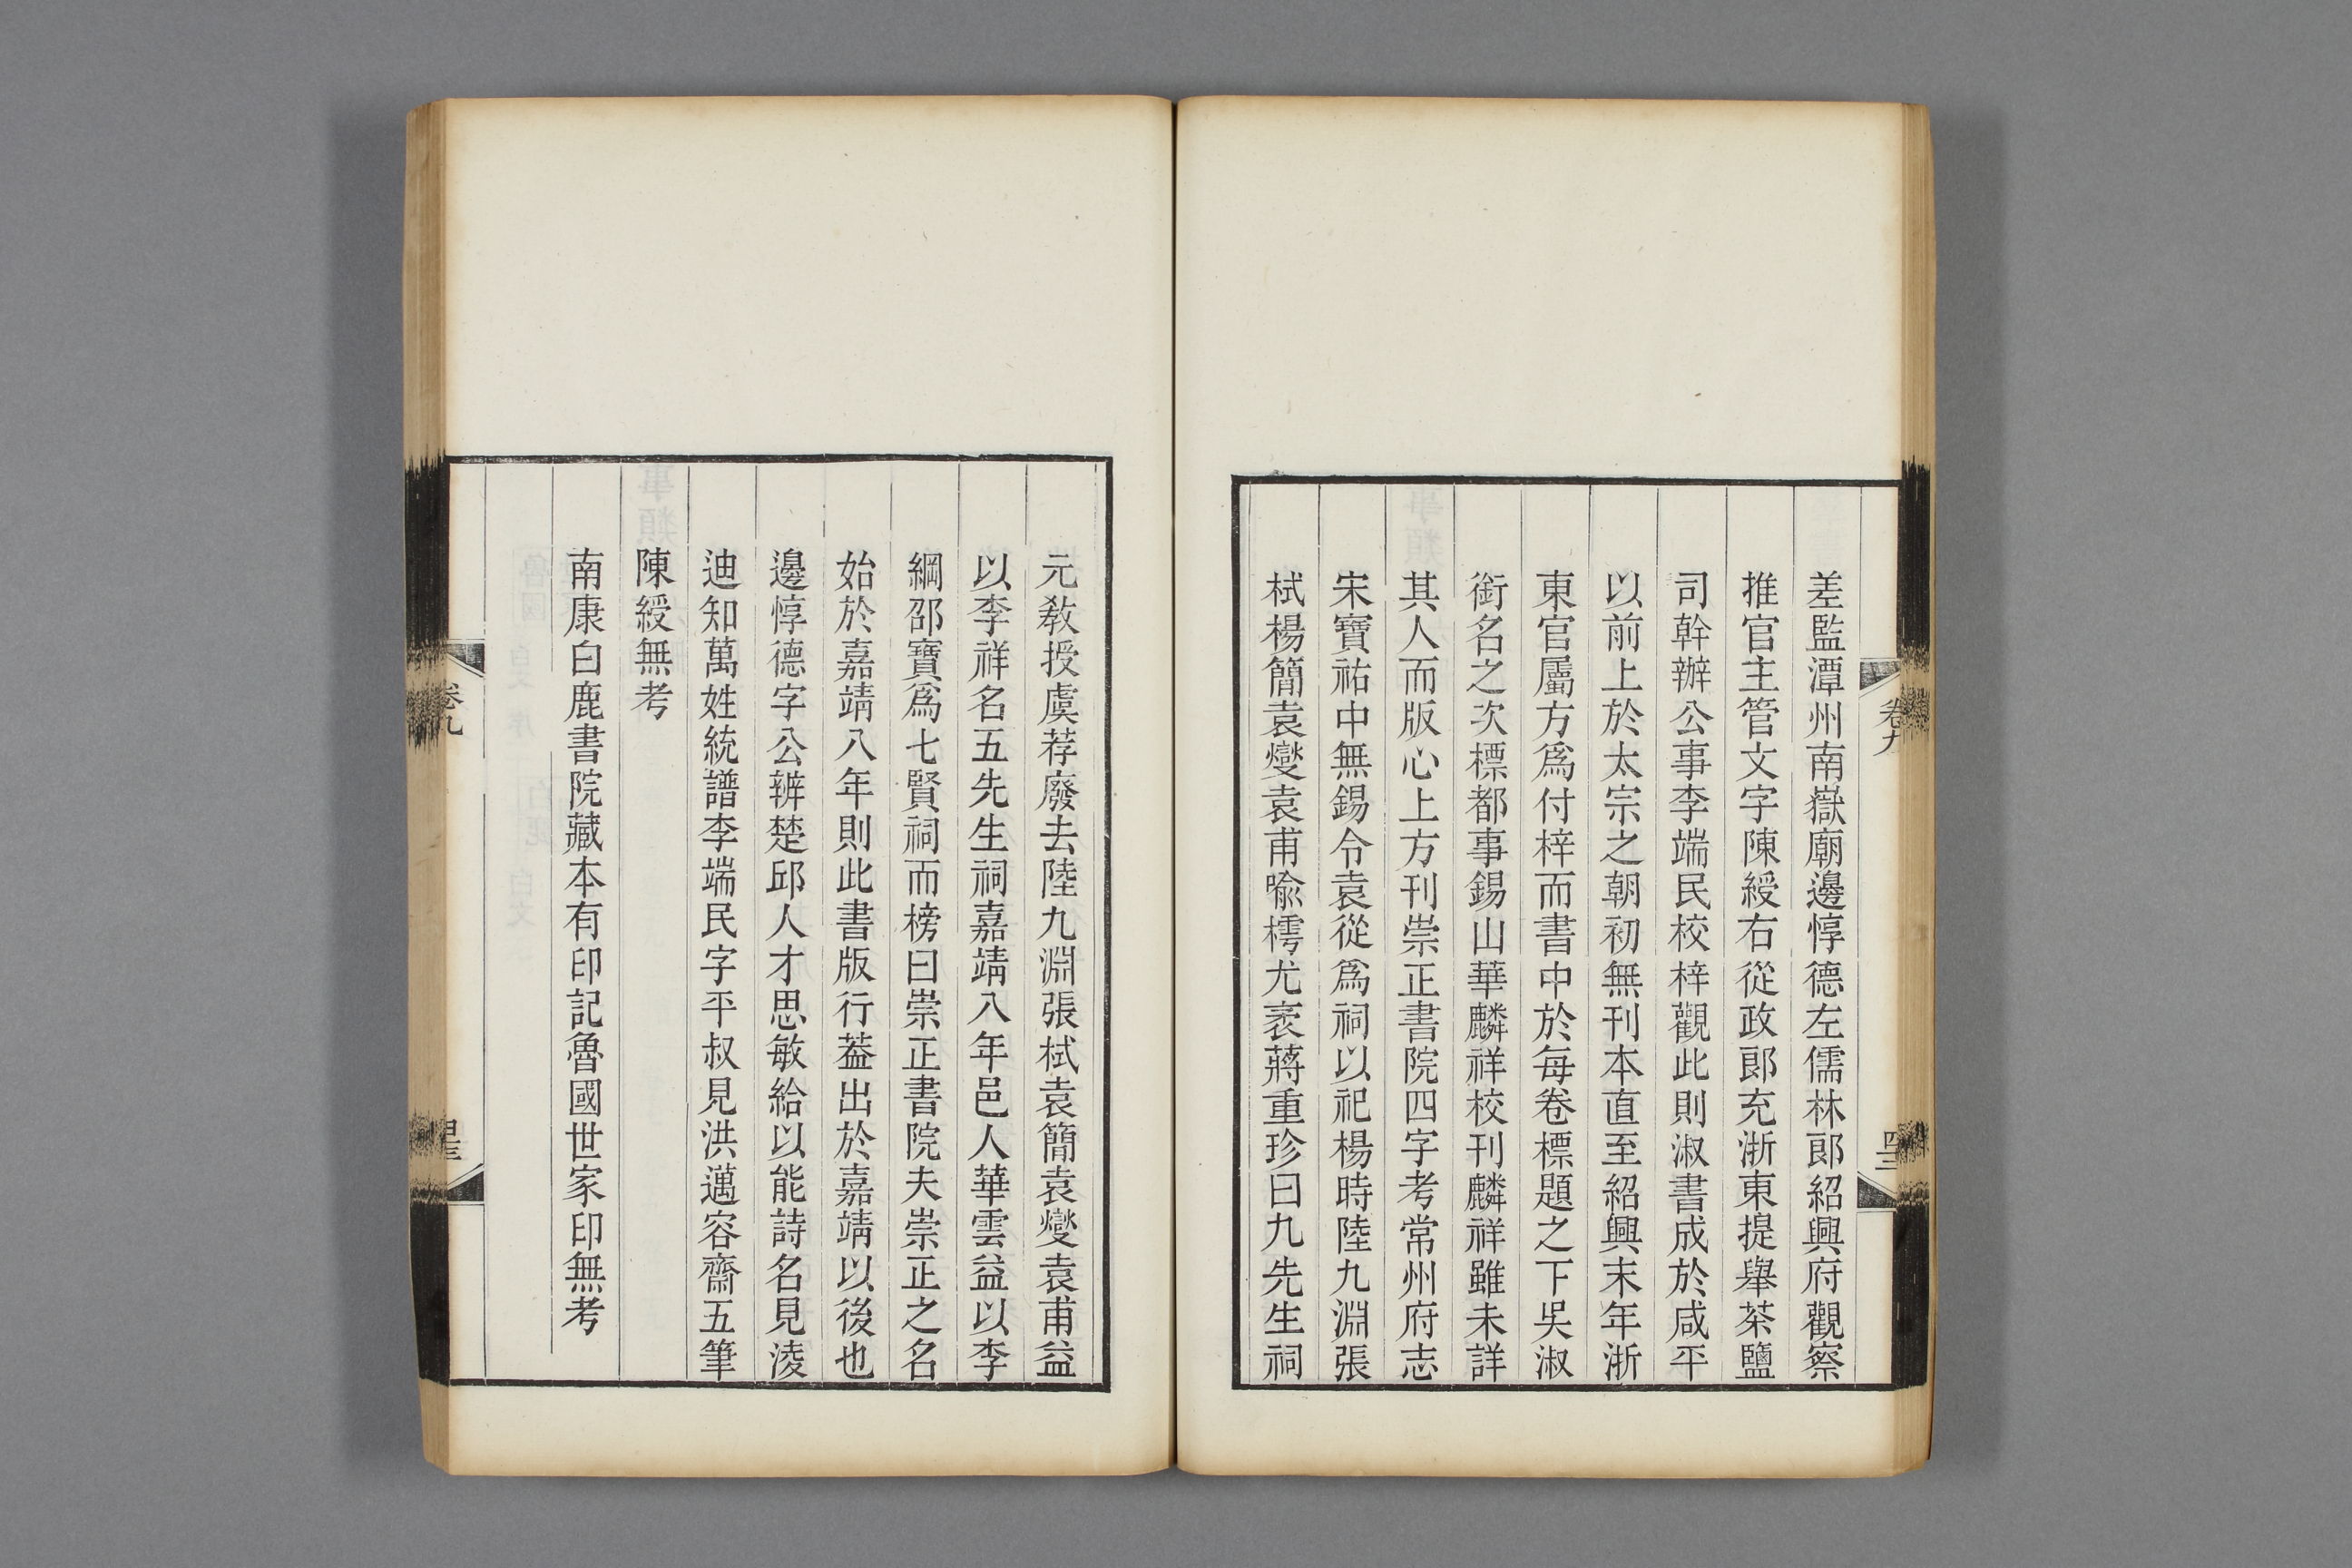 差監潭州南嶽廟邊惇德左儒林郎紹興府觀察
推官主管文字陳綬右從政郎充浙東提舉茶鹽
司幹辦公事李端民校梓觀此則淑書成於咸平
以前上於太宗之朝初無刊本直至紹興末年浙
東官屬方爲付梓而書中於每卷標題之下吳淑
銜名之次標都事錫山華麟祥校刊麟祥雖未詳
其人而版心上方刊崇正書院四字考常州府志
宋寶祐中無錫令袁從爲祠以祀楊時陸九淵張
栻楊簡袁燮袁甫喻樗尤袤蔣重珍曰九先生祠
卷九
元教授虞荐廢去陸九淵張栻袁簡袁燮袁甫益
以李祥名五先生祠嘉靖八年邑人華雲益以李
綱邵寶爲七賢祠而榜曰崇正書院夫崇正之名
始於嘉靖八年則此書版行葢出於嘉靖以後也
邊惇德字公辦楚邱人才思敏給以能詩名見淩
迪知萬姓統譜李端民字平叔見洪邁容齋五筆
陳綬無考
南康白鹿書院藏本有印記魯國世家印無考
卷九